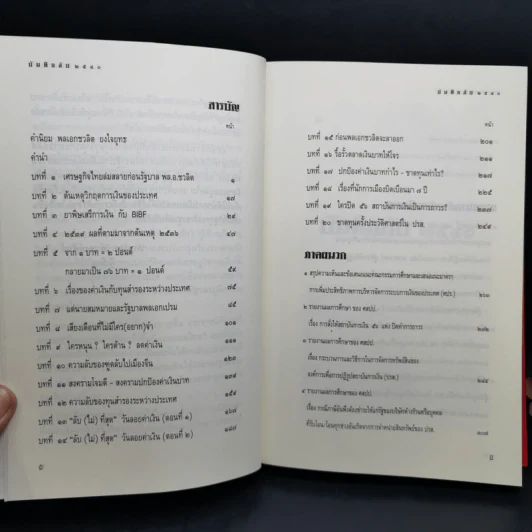 บันทึกลับ ๒๕๔๐
สารบัญ
หน้า
คำนิยม พลเอกชวลิต ยงใจยุทธ
คำนำ
บทที่ ๑ เศรษฐกิจไทยล่มสลายก่อนรัฐบาล พล.อ.ชวลิต ๑
บทที่ ๒ ต้นเหตุวิกฤตการเงินของประเทศ ๑๗
บทที่ ๓ ยาพิษเสรีการเงิน กับ BIBF ๒๙
บทที่ ๔ ๒๕๓๙ ผลที่ตามมาจากต้นเหตุ ๒๕๓๖ ๔๗
บทที่ ๕ จาก ๑ บาท = ๒ ปอนด์
กลายมาเป็น ๗๖ บาท = ๑ ปอนด์ ๕๙
บทที่ ๖ เรื่องของค่าเงินกับทุนสำรองระหว่างประเทศ ๗๕
บทที่ ๗ แต่นายสมหมายและรัฐบาลพลเอกเปรม ๘๕
บทที่ ๘ เสียงเตือนที่ไม่มีใคร(อยาก)จำ ๑๐๑
บทที่ ๙ ใครหนุน ? ใครต้าน ? ลดค่าเงิน ๑๑๑
บทที่ ๑๐ ความลับของซูสีไทเฮา
บทที่ ๑๑ สงครามโจมตี - สงครามปกป้องค่าเงินบาท
บทที่ ๑๒ ความลับของทุนสำรองระหว่างประเทศ
บทที่ ๑๓ "ลับ (ไม่) ที่สุด" วันลอยค่าเงิน (ตอนที่ ๑)
บทที่ ๑๔ "ลับ (ไม่) ที่สุด" วันลอยค่าเงิน (ตอนที่ ๒)
บันทึกลับ ๒๕๔๐
หน้า
บทที่ ๑๕ ก่อนพลเอกชวลิตจะลาออก ๒๐๑
บทที่ ๑๖ รื้อรั้วตลาดเงินบาทให้โจร ๒๑๑
บทที่ ๑๗ ปกป้องค่าเงินบาทกำไร - ขาดทุนเท่าไร? ๒๑๗
บทที่ ๑๘ เรื่องที่นักการเมืองบิดเบือนมา ๗ ปี ๒๒๕
บทที่ ๑๙ ใครปิด ๕๖ สถาบันการเงินเป็นการถาวร? ๒๓๗
บทที่ ๒๐ ขาดทุนครั้งประวัติศาสตร์ใน ปรส. ๒๔๙
ภาคผนวก
๑ สรุปความเห็นและข้อเสนอแนะคณะกรรมการศึกษาและเสนอแนะมาตรการ
การเพิ่มประสิทธิภาพการบริหารจัดการระบบการเงินของประเทศ (ศปร.)
๒ รายงานผลการศึกษา ของ ศสปป.
เรื่อง การสั่งให้สถาบันการเงิน ๕๖ แห่ง ปิดกิจการถาวร
๓ รายงานผลการศึกษา ของ ศสปป.
เรื่อง กระบวนการและวิธีการในการจัดการทรัพย์สินของ
องค์การเพื่อการปฏิรูปสถาบันการเงิน (ปรส.)
๔ รายงานผลการศึกษา ของ ศสปป.